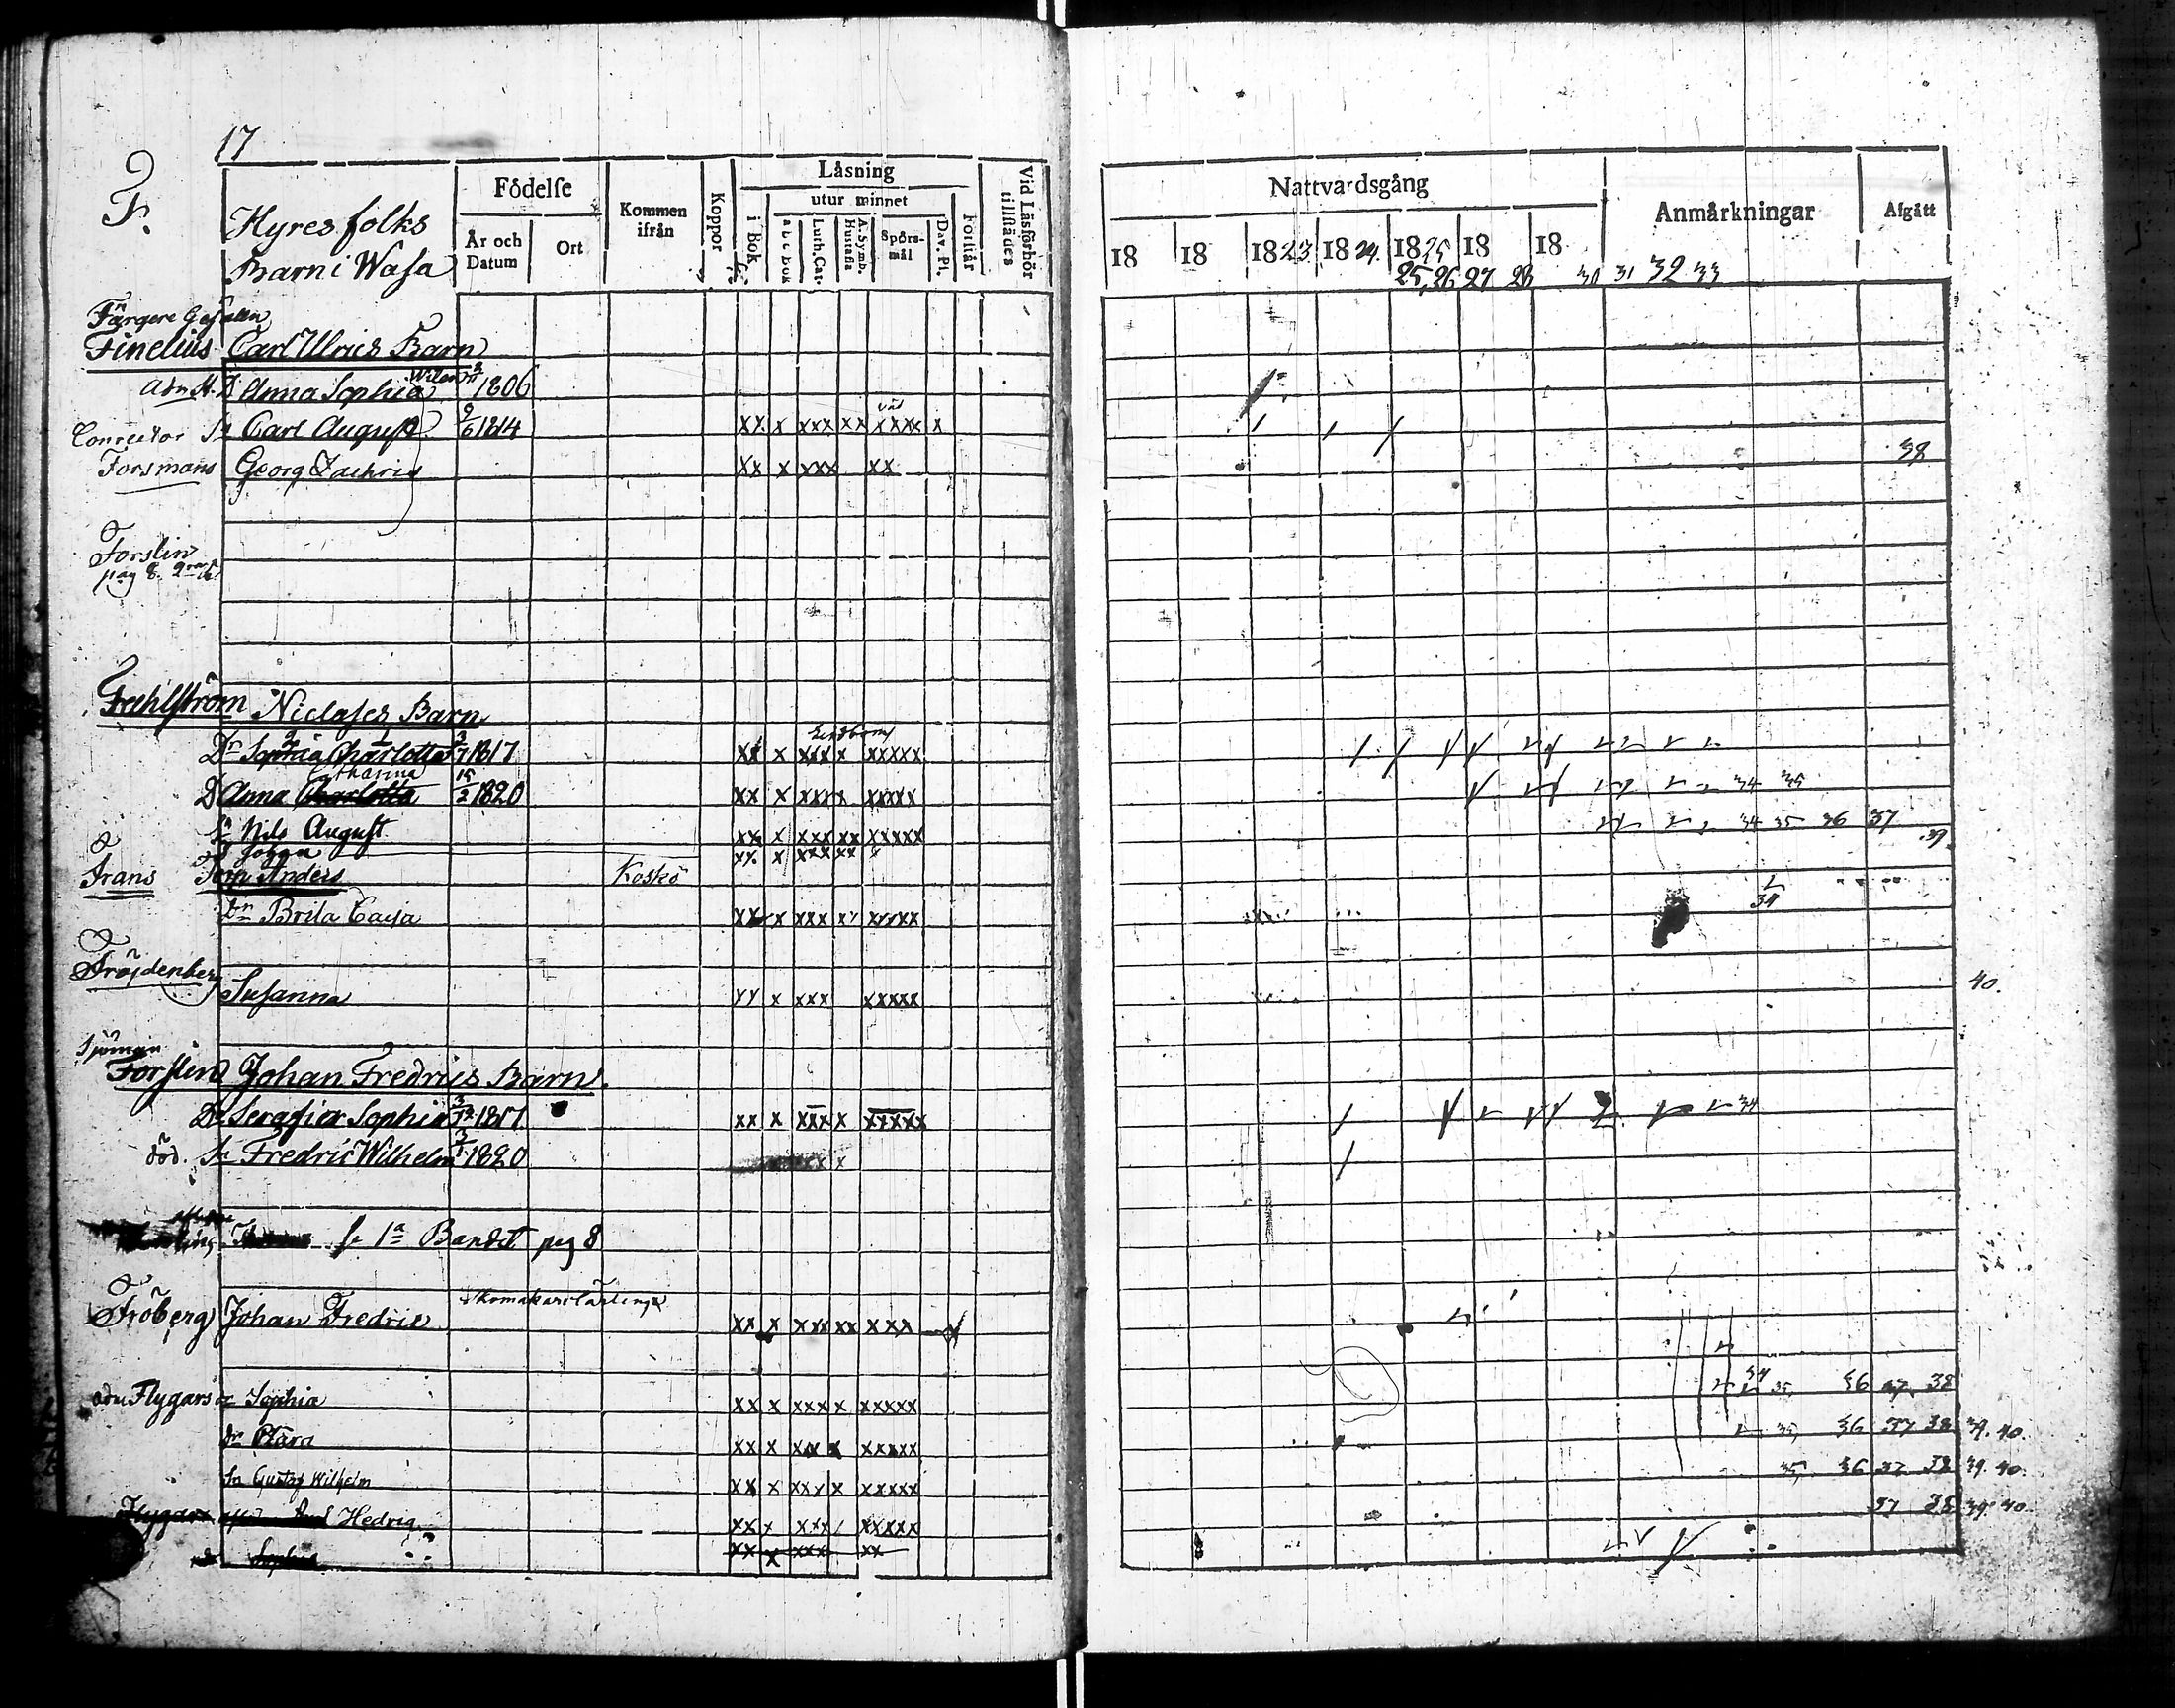 17
F.
Hyresfolks
Barn i Wasa
Födelse
År och Datum
Ort
Kommen ifrån
Koppor
Läsning
i Bok
utur minnet
a b c bok
Luth. Cat.
Hustafla
A. Symb.
Spörs-mål
Dav. Ps.
Förstår
Vid Läsförhör tillstädes
Nattvardsgång
18 18 1823 1824. 1825 18 18
25, 26 27 28 30 31 32 33
Anmärkningar
Afgått
Färgere Gesällen
Finelius Carl Ulrics Barn
Anna Sophia 1806
Carl August 9/6 1814 xx x xxx xx xxxx x
Conrector
Forsmans Georg Zachris xx x xxx xx 38
Forslin
pag 8.
Fehlström Niclases Barn
Dr Sophia Charlotta 3/7 1817 xx x xxx x xxxxx
Catharina
D Anna Charlotta 15/2 1820 xx x xxxx xxxxx 34 35
Sn Nils August xx x xxx xx xxxxx 34 35 36 37
Johan xx x xxx xx x 39.
Frans
Torp Anders Koskö
34
Dn Brita Cajsa xx x xxx xx xxxxx
Fröjdenberg
Susanna xx x xxx xxxxx 40.
Sjöman
Forslin Johan Fredrics Barn.
Dr Serafia Sophia 3/12 1817. xx x xxx x xxxxx 34
död. Sn Fredric Wilhelm 1820
se 1a Bandet pag 8
Skomakarelärling
Fröberg Johan Fredric xx x xxx xx xxx
Flygars Sophia xx x xxx x xxxxx 34 35. 36 37. 38
dr Clara xx x xxx x xxxxx 35, 36 37 38 39. 40
Sn Gustaf Wilhelm xx x xxx x xxxxx 35, 36 37 38 39. 40.
Flygar Hedvig xx x xxx xxxxx 37 38 39. 40.
Sophia xx x xxx xx